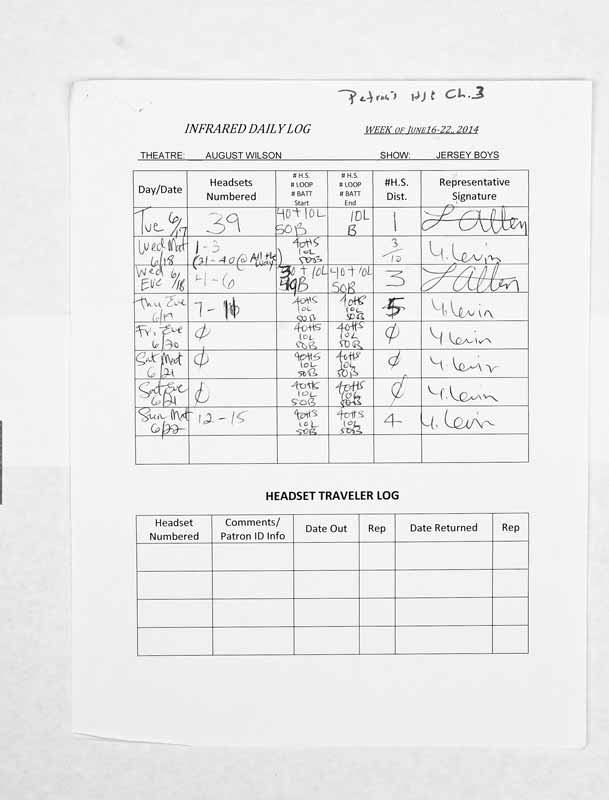 Ch. 3
INFRARED DAILY LOG WEEK OF JUNE16-22, 2014
THEATRE: AUGUST WILSON SHOW: JERSEY BOYS
Day/Date Headsets Numbered # H.S. # LOOP # BATT Start # H.S. # LOOP # BATT End #H.S. Dist. Representative Signature
Tue 6/17 39 40+10L 50B 10L B 1 L Allen
Wed Mat 6/18 1-3 (21-40 @ All the way) 40HS 10L 50B 3/10 Y. Levin
Wed Eve 6/18 4-6 30+10L 49B 40+10L 50B 3 L Allen
Thu Eve 6/19 7-11 40HS 10L 50B 40HS 10L 50B 5 Y. Levin
Fri Eve 6/20 ∅ 40HS 10L 50B 40HS 10L 50B ∅ Y. Levin
Sat Mat 6/21 ∅ 40HS 10L 50B 40HS 10L 50B ∅ Y. Levin
Sat Eve 6/21 ∅ 40HS 10L 50B 40HS 10L 50B ∅ Y. Levin
Sun Mat 6/22 12-15 40HS 10L 50B 40HS 10L 50B 4 Y. Levin
HEADSET TRAVELER LOG
Headset Numbered Comments/ Patron ID Info Date Out Rep Date Returned Rep